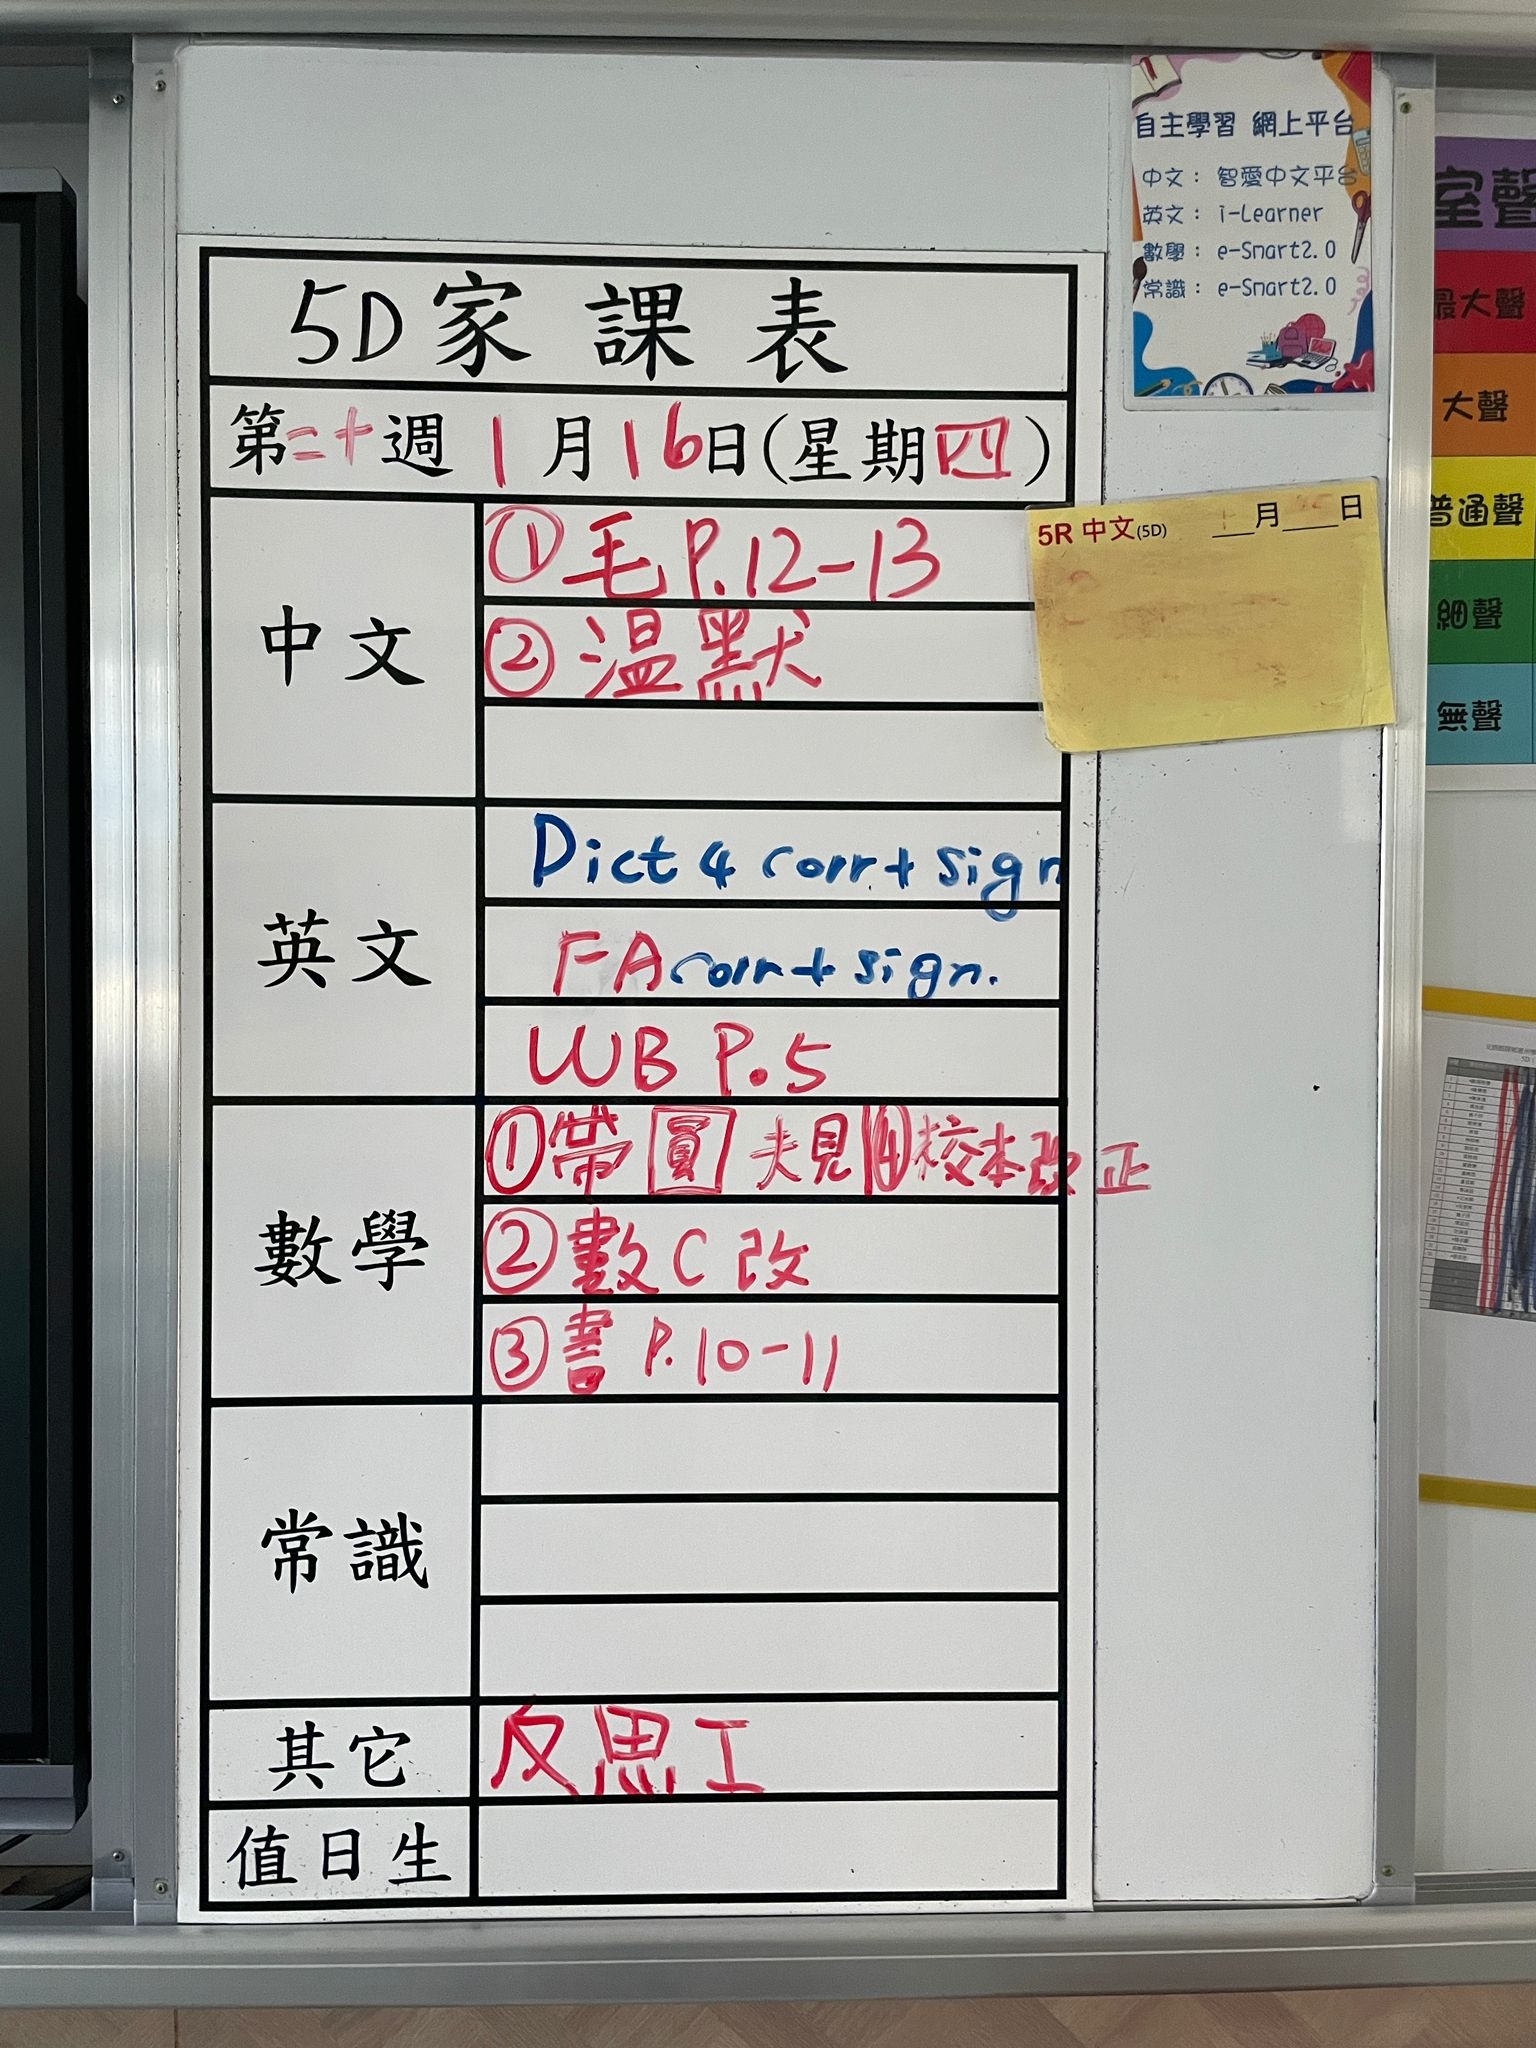 自主學習 網上平台
中文： 智愛中文平台
英文： i-Learner
數學： e-Smart2.0
常識： e-Smart2.0
室聲
最大聲
大聲
普通聲
細聲
無聲
5D家課表
第二十週 1月16日(星期四)
5R 中文(5D) 月 日
中文
①毛P.12-13
②温默
英文
Dict 4 corr + sign
FA corr + sign.
WB P.5
數學
①帶圓 見④校本改正
②數C改
③書 P.10-11
常識
其它
反思工
值日生